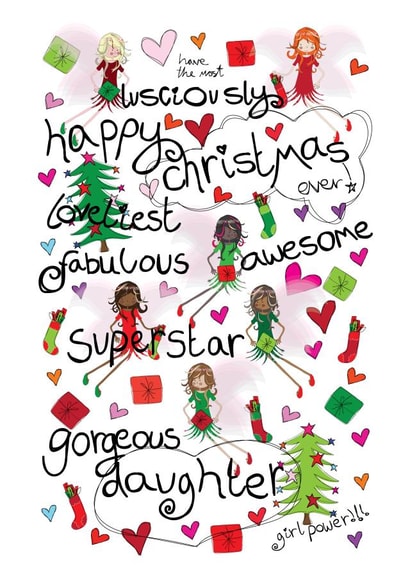 have
the most
lusciously
happy
christmas
ever!
loveliest
fabulous awesome
superstar
gorgeous
daughter
girl power!!!